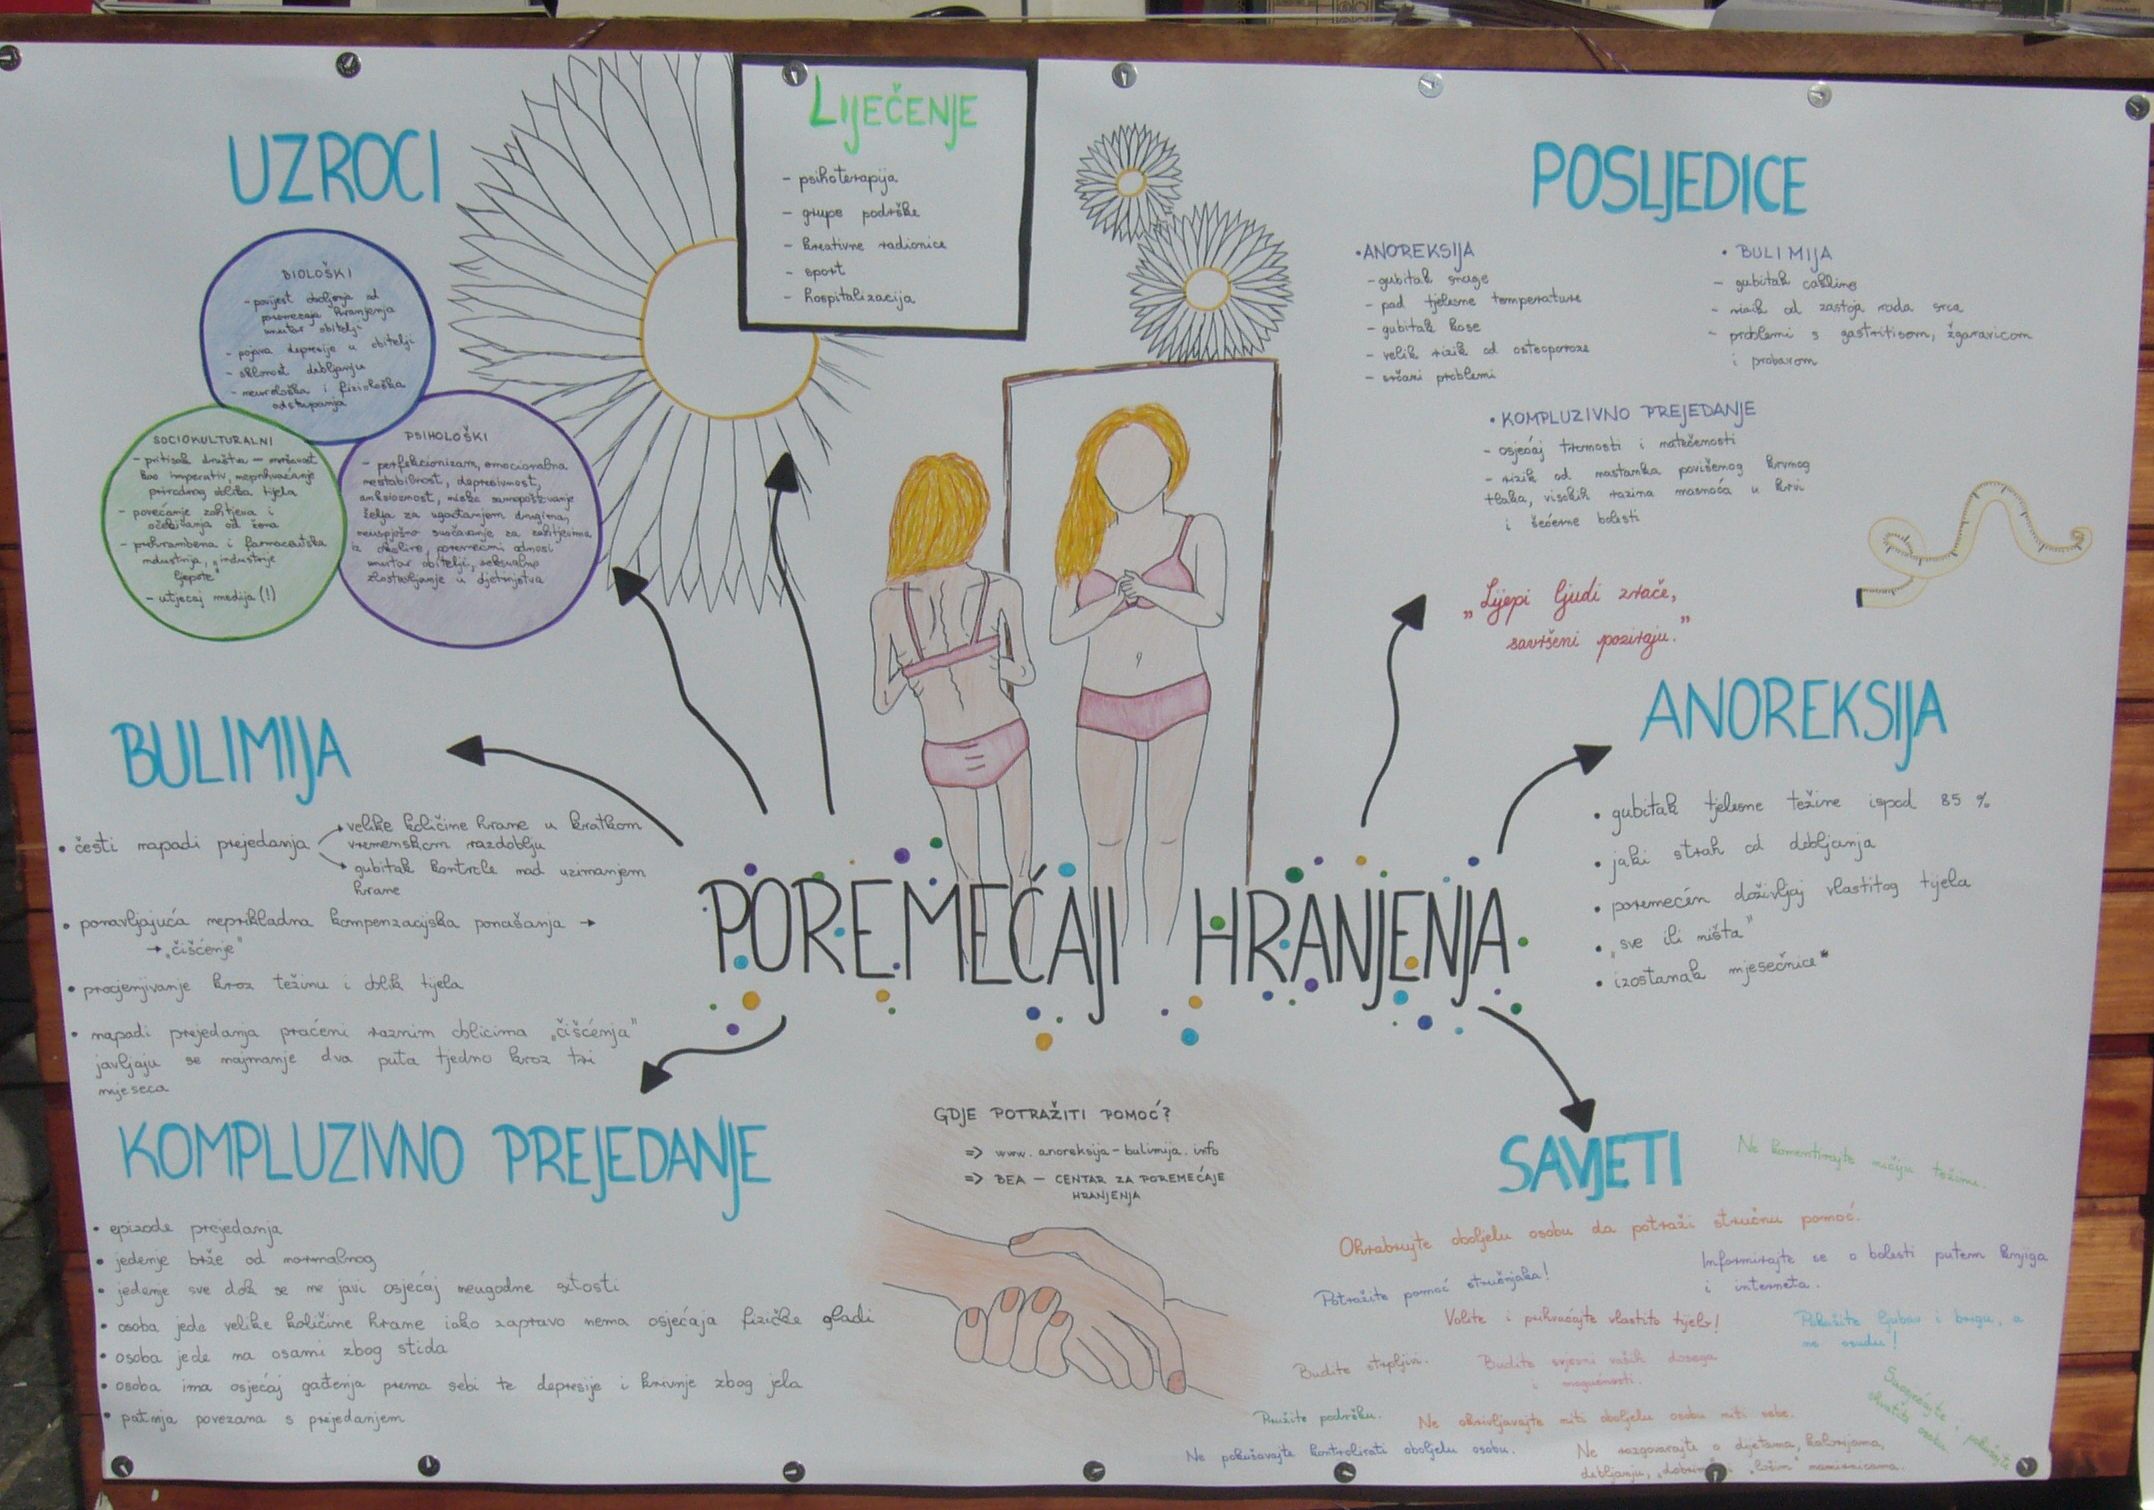 UZROCI
BIOLOŠKI
- povijest oboljenja od
poremećaja hranjenja
unutar obitelji
- pojava depresije u obitelji
- sklonost debljanju
- neurološka i fiziološka
odstupanja
SOCIOKULTURALNI
- pritisak društva — mršavost
kao imperativ, neprihvaćanje
prirodnog oblika tijela
- povećanje zahtjeva i
očekivanja od žena
- prehrambena i farmaceutska
industrija, „industrija
ljepote"
- utjecaj medija (!)
PSIHOLOŠKI
- perfekcionizam, emocionalna
nestabilnost, depresivnost,
anksioznost, nisko samopoštovanje
želja za ugađanjem drugima,
neuspješno suočavanje sa zahtjevima
iz okoline, poremećeni odnosi
unutar obitelji, seksualno
zlostavljanje u djetinjstvu
LIJEČENJE
- psihoterapija
- grupe podrške
- kreativne radionice
- sport
- hospitalizacija
POSLJEDICE
• ANOREKSIJA
- gubitak snage
- pad tjelesne temperature
- gubitak kose
- velik rizik od osteoporoze
- srčani problemi
• BULIMIJA
- gubitak cakline
- rizik od zastoja rada srca
- problemi s gastritisom, žgaravicom
i probavom
• KOMPLUZIVNO PREJEDANJE
- osjećaj tromosti i natečenosti
- rizik od nastanka povišenog krvnog
tlaka, visokih razina masnoća u krvi
i šećerne bolesti
„Lijepi ljudi zrače,
savršeni poziraju."
BULIMIJA
• česti napadi prejedanja
velike količine hrane u kratkom
vremenskom razdoblju
gubitak kontrole nad uzimanjem
hrane
• ponavljajuća neprikladna kompenzacijska ponašanja →
→ „čišćenje"
• procjenjivanje kroz težinu i oblik tijela
• napadi prejedanja praćeni raznim oblicima „čišćenja"
javljaju se najmanje dva puta tjedno kroz tri
mjeseca
ANOREKSIJA
• gubitak tjelesne težine ispod 85 %
• jaki strah od debljanja
• poremećen doživljaj vlastitog tijela
• „sve ili ništa"
• izostanak mjesečnice*
POREMEĆAJI HRANJENJA
KOMPLUZIVNO PREJEDANJE
• epizode prejedanja
• jedenje brže od normalnog
• jedenje sve dok se ne javi osjećaj neugodne sitosti
• osoba jede velike količine hrane iako zapravo nema osjećaja fizičke gladi
• osoba jede na osami zbog stida
• osoba ima osjećaj gađenja prema sebi te depresije i krivnje zbog jela
• patnja povezana s prejedanjem
GDJE POTRAŽITI POMOĆ?
=> www.anoreksija-bulimija.info
=> BEA — CENTAR ZA POREMEĆAJE
HRANJENJA
SAVJETI
Ne komentirajte ničiju težinu.
Ohrabrujte oboljelu osobu da potraži stručnu pomoć.
Informirajte se o bolesti putem knjiga
i interneta.
Potražite pomoć stručnjaka!
Volite i prihvaćajte vlastito tijelo!
Pokažite ljubav i brigu, a
ne osudu!
Budite strpljivi.
Budite svjesni vaših dosega
i mogućnosti.
Pružite podršku.
Ne okrivljavajte niti oboljelu osobu niti sebe.
Ne pokušavajte kontrolirati oboljelu osobu.
Ne razgovarajte o dijetama, kalorijama,
debljanju, „dobrim" i „lošim" namirnicama.